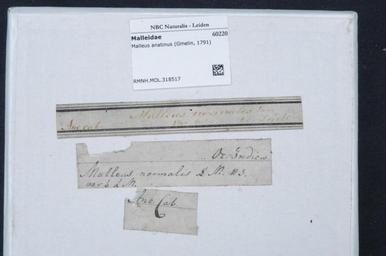 NBC Naturalis - Leiden
Malleidae 60220
Malleus anatinus (Gmelin, 1791)
RMNH.MOL.318517
Malleus normalis
Anc cab.
Oc. Indicus
Malleus normalis 2 N. 43.
var. b. L. M.
Anc Cab